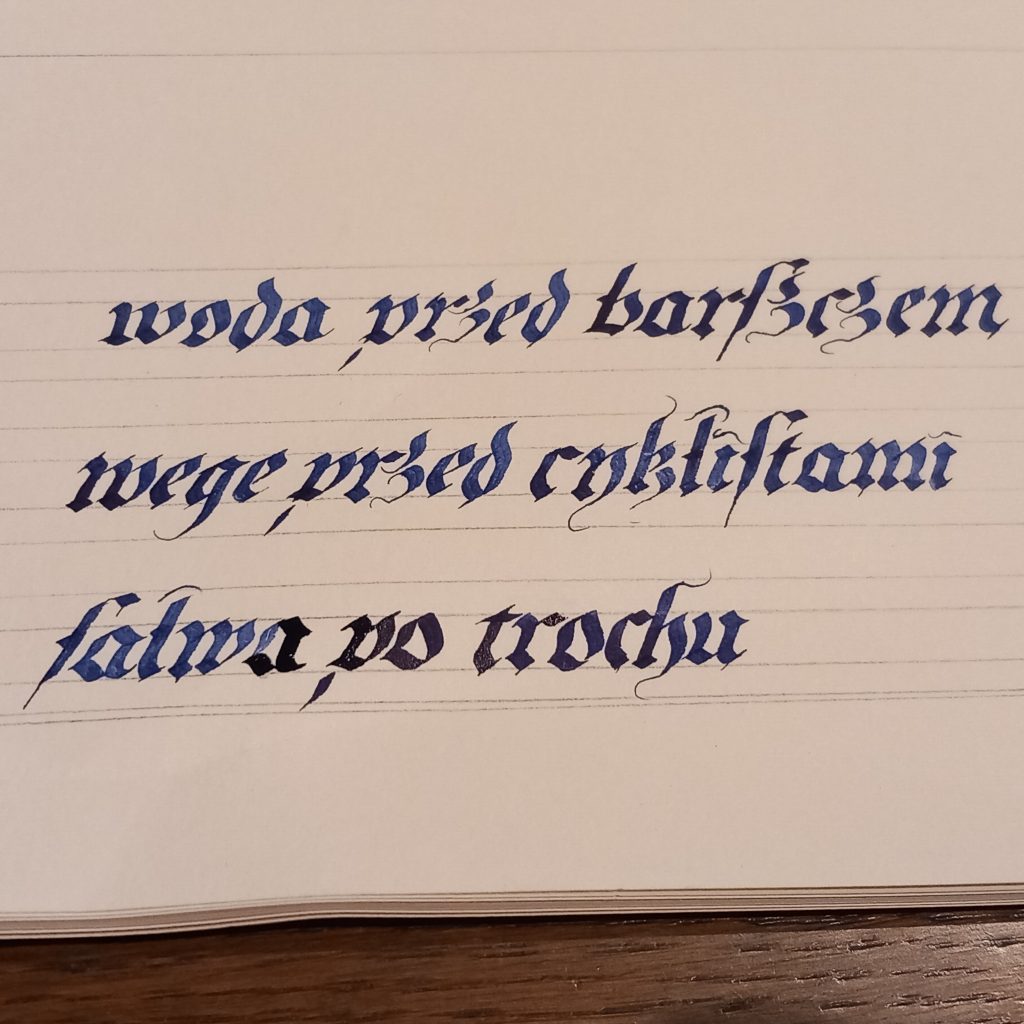 woda przed barſzczem
wege przed cykliſtami
ſalwa po trochu